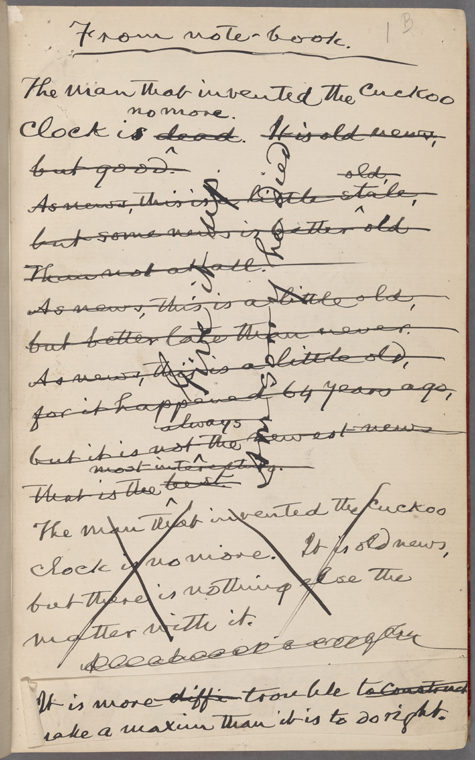 From note-book.
1 B
The man that invented the Cuckoo
no more.
Clock is dead. It is old news,
but good.
old,
As news, this is a little stale,
but some news is better old
Than not at all.
As news, this is a little old,
but better late than never.
As news, this is a little old,
for it happened 64 years ago,
always
but it is not the newest news
most interesting.
that is the best.
Give it up
Am sorry he died
The man that invented the Cuckoo
clock is no more. It is old news,
but there is nothing else the
matter with it.
It is more diffi trouble to construct
make a maxim than it is to do right.